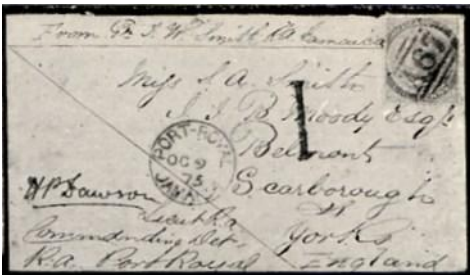 From Gr. J. W. Smith R.A. Jamaica
Miss S. A. Smith
J. J. B. Moody Esqr
Belmont
Scarborough
Yorks
England
1
A 67
PORT-ROYAL
OC 9
75
JAMAICA
H P Dawson
Lieut R.A.
Commanding Det.
R.A. Port Royal